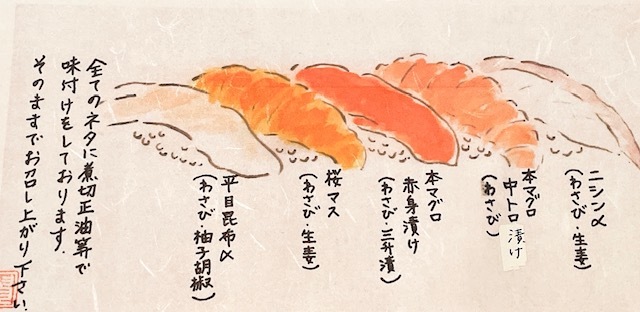 ニシン〆
(わさび・生姜)
本マグロ
中トロ漬け
(わさび)
本マグロ
赤身漬け
(わさび・三升漬)
桜マス
(わさび・生姜)
平目昆布〆
(わさび・柚子胡椒)
全てのネタに煮切正油等で
味付けをしております.
そのままでお召し上がり下さい.